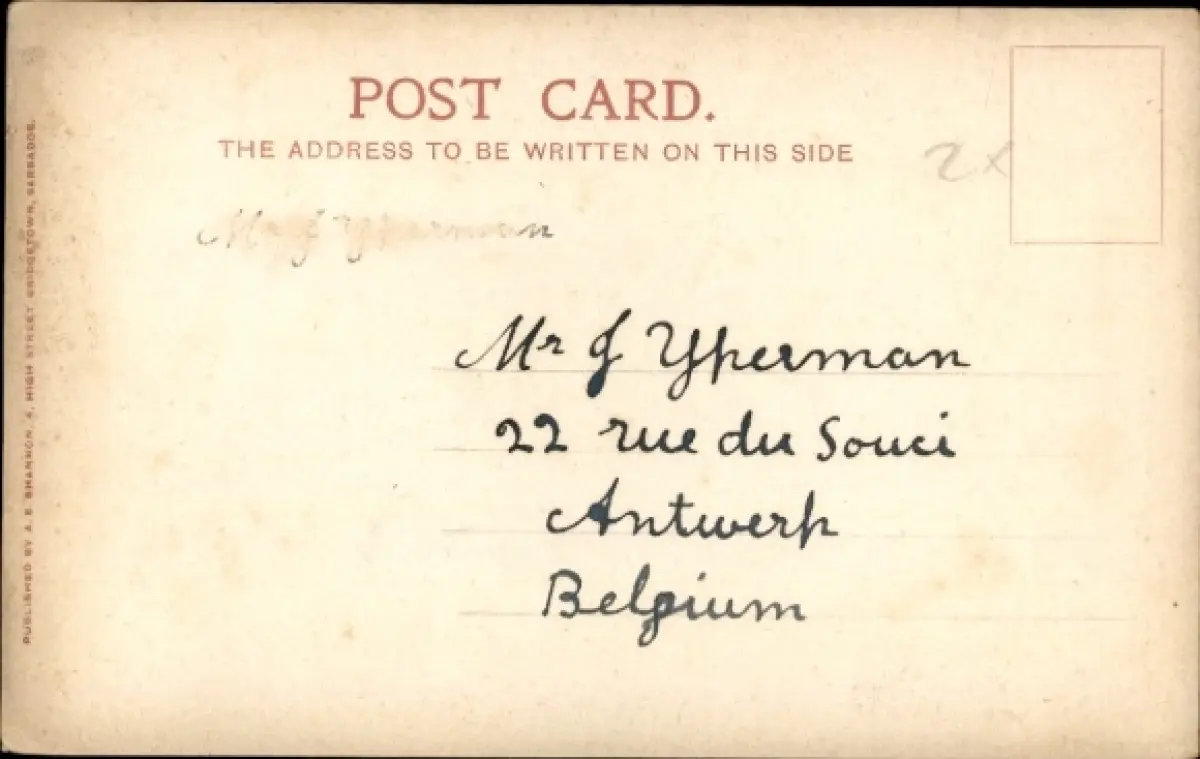 POST CARD.
THE ADDRESS TO BE WRITTEN ON THIS SIDE
2x
Mr J Yperman
Mr J Yperman
22 rue du Souci
Antwerp
Belgium
PUBLISHED BY A. E. SHANNON, 4, HIGH STREET BRIDGETOWN, BARBADOS.